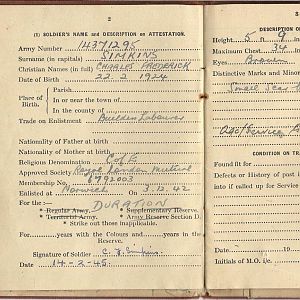 2
(1) SOLDIER'S NAME and DESCRIPTION on ATTESTATION.
Army Number 14371295
Surname (in capitals) SIMKINS
Christian Names (in full) CHARLES FREDERICK
Date of Birth 22.2.1924
Place of Birth
Parish
In or near the town of
In the county of
Trade on Enlistment Builders Labourer
Nationality of Father at birth
Nationality of Mother at birth
Religious Denomination C of E
Approved Society Royal London Mutual
Membership No.
Enlisted at Norwich On 3.12.42
For the:— DURATION
* Regular Army. * Supplementary Reserve.
* Territorial Army. * Army Reserve Section D.
* Strike out those inapplicable.
For years with the Colours and years in the Reserve.
Signature of Soldier C. F. Simkins
Date 14-2-45
DESCRIPTION ON
Height 5 ft. 9
Maximum Chest 34
Eyes Brown
Distinctive Marks and Minor
Small Scar
CONDITION ON TRA
Found fit for
Defects or History of past
into if called up for Service
Date 19
Initials of M.O. i/c.